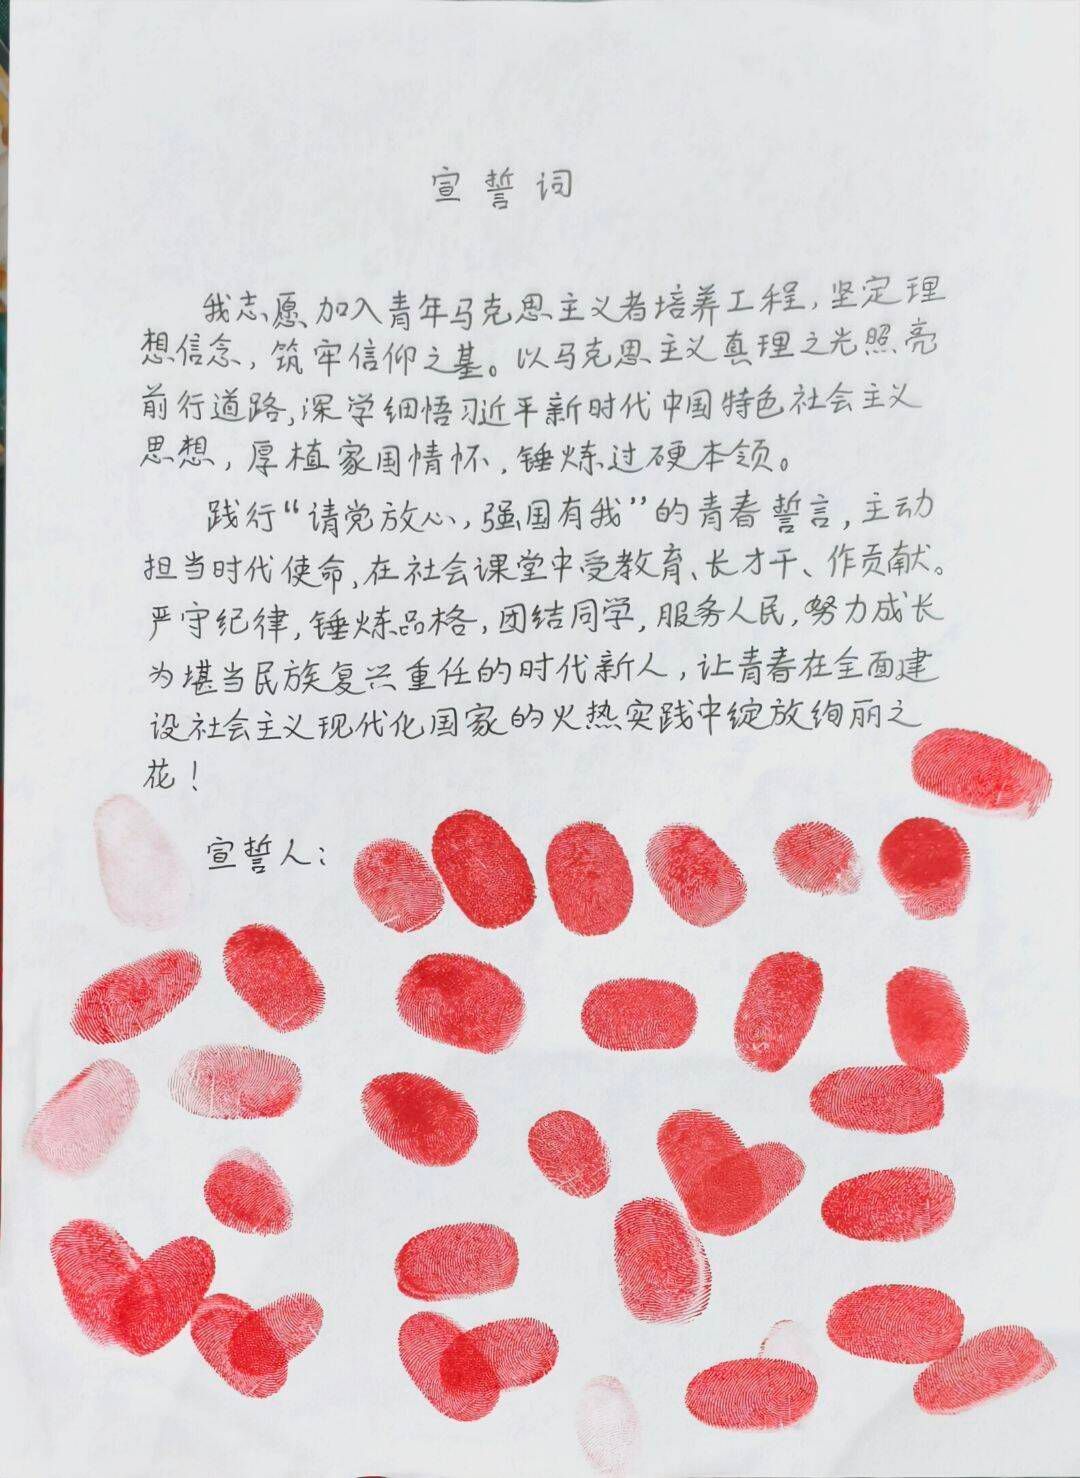 宣誓词
我志愿加入青年马克思主义者培养工程，坚定理
想信念，筑牢信仰之基。以马克思主义真理之光照亮
前行道路，深学细悟习近平新时代中国特色社会主义
思想，厚植家国情怀，锤炼过硬本领。
践行“请党放心，强国有我”的青春誓言，主动
担当时代使命，在社会课堂中受教育、长才干、作贡献。
严守纪律，锤炼品格，团结同学，服务人民，努力成长
为堪当民族复兴重任的时代新人，让青春在全面建
设社会主义现代化国家的火热实践中绽放绚丽之
花！
宣誓人：